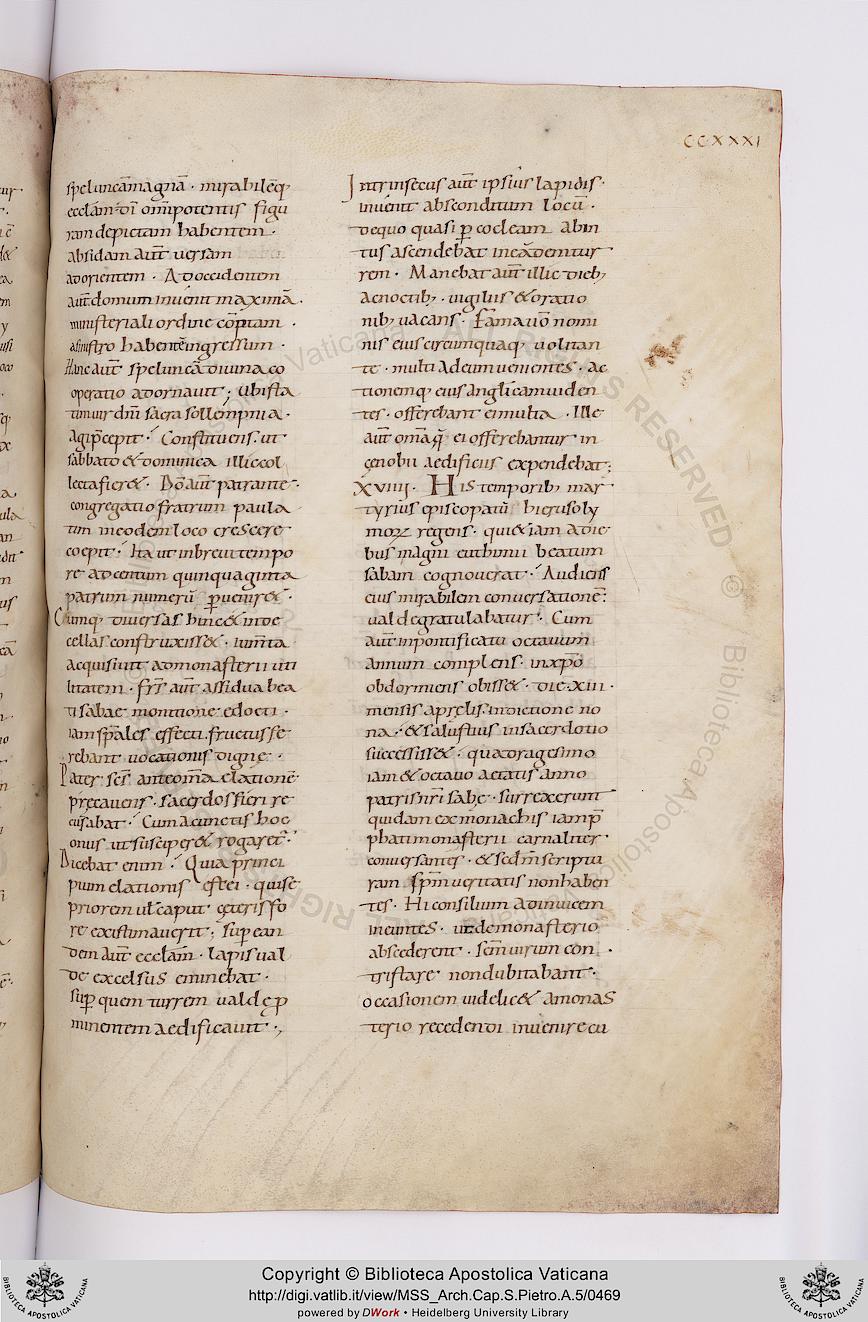 CCXXXI
speluncāmagnā · mirabilēq;
ecclam̄ dī om̄ipotentis figu
ram depictam habentem ·
absidam aut̄ uersam
adorientem · Adoccidentem
aut̄ domum inuenit maximā ·
ministeriali ordine cōptam ·
asinistro habentēingressum ·
Hanc aut̄ speluncā diuina co
operatio adornauit ; ubi sta
tim uir dn̄i sacra sollempnia ·
agi p̄cepit · Constituens · ut
sabbato & dominica illic col
lecta fier& · Dō aut̄ patrante ·
congregatio fratrum paula
tim ineodem loco crescere
coepit · Ita ut inbreui tempo
re adcentum quinquaginta
patrum numerū p̲uenir& ·
Cumq; diuersas hinc & inde
cellas construxiss& · iumta
acquisiuit admonasterii uti
litatem · frs̄ aut̄ assidua bea
ti sabae monitione edocti ·
iam sp̄ales effecti · fructus fe
rebant uocationis dignę ·
Pater scs̄ anteom̄a elationē
pręcauens · sacerdos fieri re
cusabat · Cum a cunctis hoc
onus ut susciper& rogaret̄ ·
Dicebat enim · Quia princi
pium elationis est ei · qui se
priorem ul̄ caput cęteris fo
re existimauerit ; sup̲ ean
dem aut̄ ecclam̄ · lapis ual
de excelsus eminebat ·
sup̲ quem turrem ualde p̲
minentem aedificauit ·,
Intrinsecus aut̄ ipsius lapidis ·
inuenit absconditum locū ·
dequo quasi p̲ cocleam abin
tus ascendebat incādemtur
rem · Manebat aut̄ illic dieb;
acnoctib; · uigiliis & oratio
nib; uacans · Fama uō nomi
nis eius circumquaq; uolitan
te · multi adeum uenientes · ac
tionemq; eius anglicam uiden
tes · offerebant ei multa · Ille
aut̄ om̄a q̨ ei offerebantur in
cenobii aedificiis expendebat ;
XVIIII · His temporib; mar
tyrius episcopatū hierusoly
moꝝ regens · qui & iam adie
bus magni euthimii beatum
sabam cognouerat · Audiens
eius mirabilem conuersationē :
ualde gratulabatur · Cum
aut̄ inpontificatu octauum
annum complens · inxpō
obdormiens obiss& · die · XIII ·
mensis aprelis · indictione no
na · & salustius insacerdotio
successiss& · quadragesimo
iam & octauo aetatis anno
patris nr̄i sabę · surrexerunt
quidam ex monachis iam p̲
phati monasterii carnaliter
conuersantes · & secdm̄ scriptu
ram sp̄m ueritatis non haben
tes · Hi consilium adinuicem
ineuntes · ut demonasterio
abscederent · scm̄ uirum con ·
tristare non dubitabant ·
occasionem uidelic& amonas
terio recedendi inuenire cu
Copyright © Biblioteca Apostolica Vaticana
http://digi.vatlib.it/view/MSS_Arch.Cap.S.Pietro.A.5/0469
powered by DWork • Heidelberg University Library